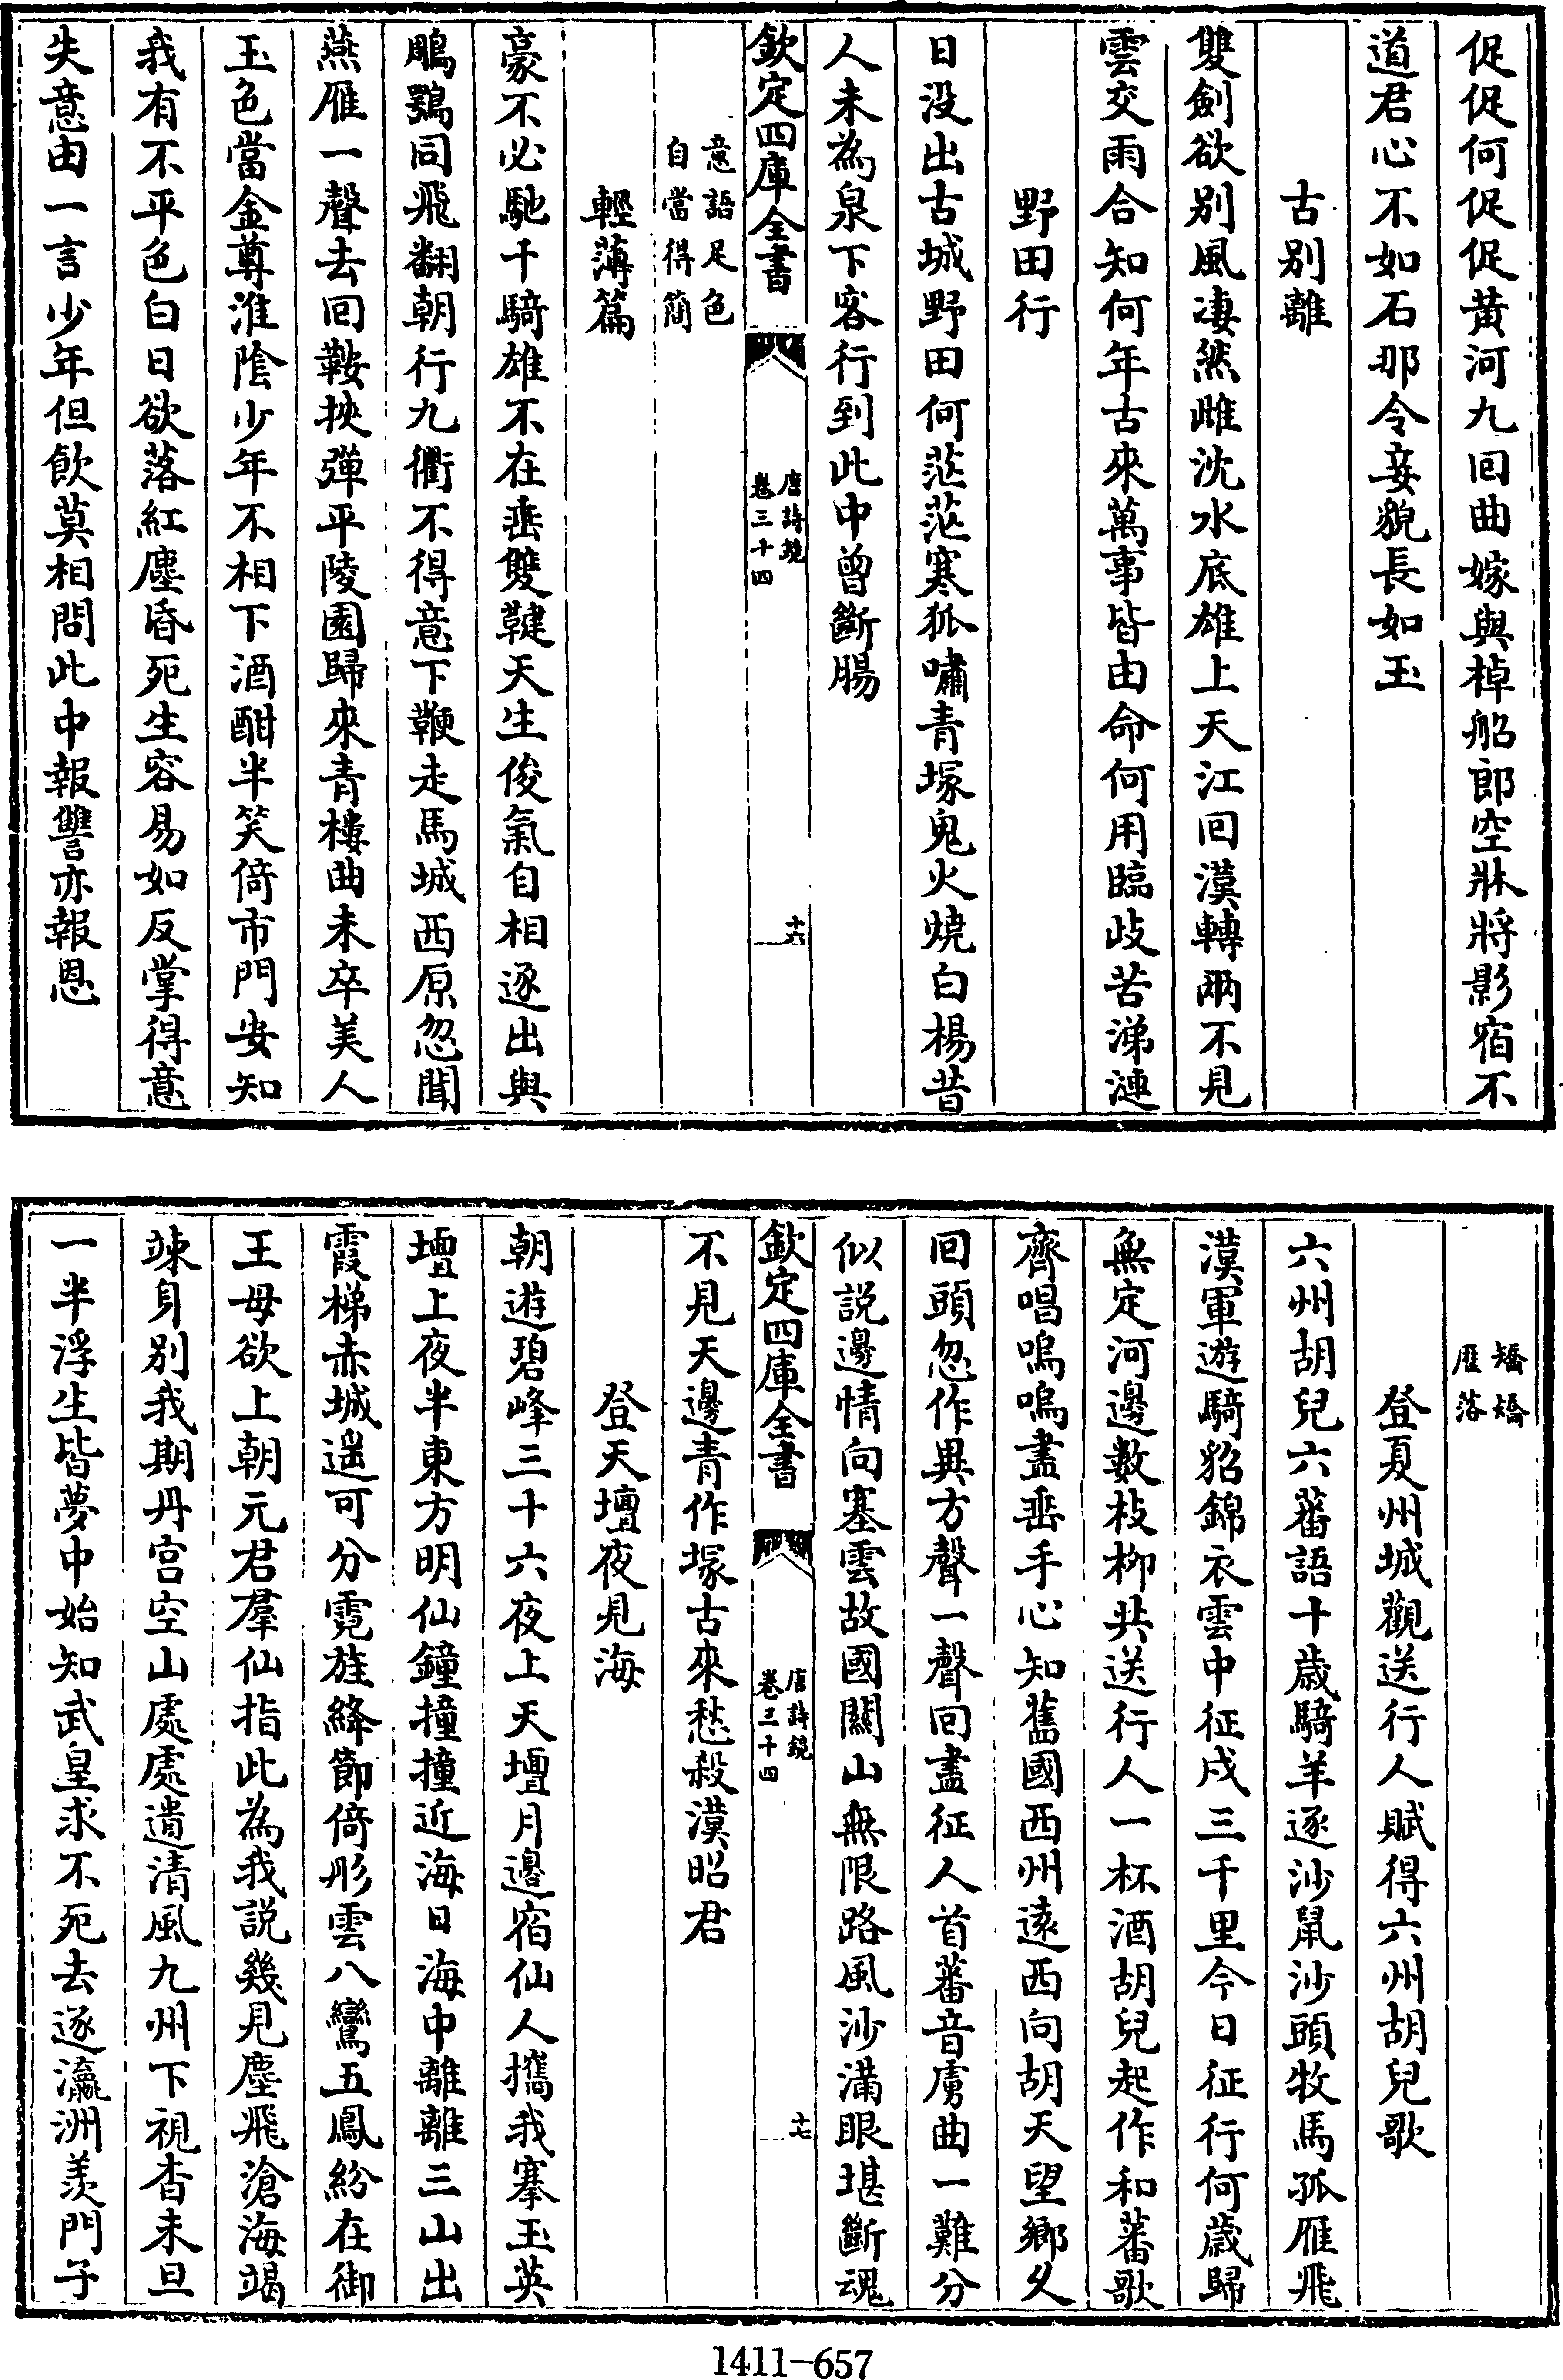 促促何促促黄河九回曲嫁與棹船郎空牀將影宿不
道君心不如石那令妾貌長如玉
古别離
雙劍欲别風凄然雌沈水底雄上天江回漢轉兩不見
雲交雨合知何年古來萬事皆由命何用臨歧苦涕漣
野田行
日没出古城野田何茫茫寒狐嘯青塚鬼火燒白楊昔
人未為泉下客行到此中曾斷腸
欽定四庫全書
唐詩鏡
卷三十四
十六
意語足色
自當得簡
輕薄篇
豪不必馳千騎雄不在垂雙鞬天生俊氣自相逐出與
鵰鶚同飛翻朝行九衢不得意下鞭走馬城西原忽聞
燕雁一聲去回鞍挾彈平陵園歸來青樓曲未卒美人
玉色當金尊淮陰少年不相下酒酣半笑倚市門安知
我有不平色白日欲落紅塵昏死生容易如反掌得意
失意由一言少年但飲莫相問此中報讐亦報恩
矯矯
歴落
登夏州城觀送行人賦得六州胡兒歌
六州胡兒六蕃語十歲騎羊逐沙鼠沙頭牧馬孤雁飛
漢軍遊騎貂錦衣雲中征戍三千里今日征行何歲歸
無定河邊數枝柳共送行人一杯酒胡兒起作和蕃歌
齊唱嗚嗚盡垂手心知舊國西州遠西向胡天望鄉乆
回頭忽作異方聲一聲回盡征人首蕃音虜曲一難分
似說邊情向塞雲故國關山無限路風沙滿眼堪斷魂
欽定四庫全書
唐詩鏡
卷三十四
十七
不見天邊青作塚古來愁殺漢昭君
登天壇夜見海
朝遊碧峰三十六夜上天壇月邊宿仙人攜我搴玉英
壇上夜半東方明仙鐘撞撞近海日海中離離三山出
霞梯赤城遥可分霓旌絳節倚彤雲八鸞五鳳紛在御
王母欲上朝元君羣仙指此為我說幾見塵飛滄海竭
竦身别我期丹宫空山處處遺清風九州下視杳未旦
一半浮生皆夢中始知武皇求不死去逐瀛洲羨門子
1411-657